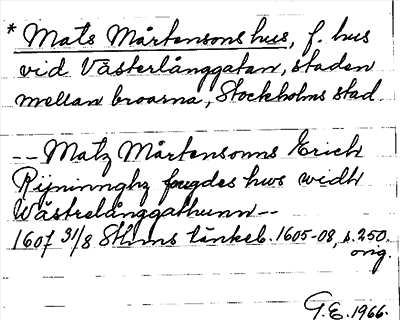 * Mats Mårtensons hus, f. hus
vid Västerlånggatan, staden
mellan broarna, Stockholms stad.
-- Matz Mårtensonns Erich
Rijninnghz fougdes hws widh
Wästrelånggathunn --
1607 31/8 Sthms tänkeb. 1605-08, s. 250.
orig.
G.E. 1966.